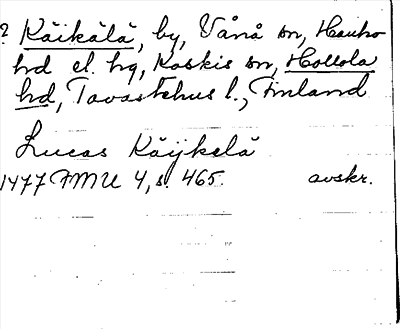 ? Käikälä, by, Vånå sn, Hauho
hd el. hg, Koskis sn, Hollola
hd, Tavastehus l., Finland
Lucas Käijkelä
1477 FMU 4, s. 465. avskr.